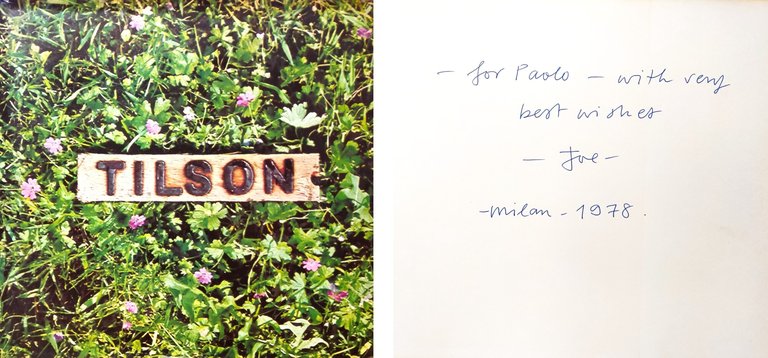 TILSON
- for Paolo - with very
best wishes
- Joe -
- Milan - 1978.